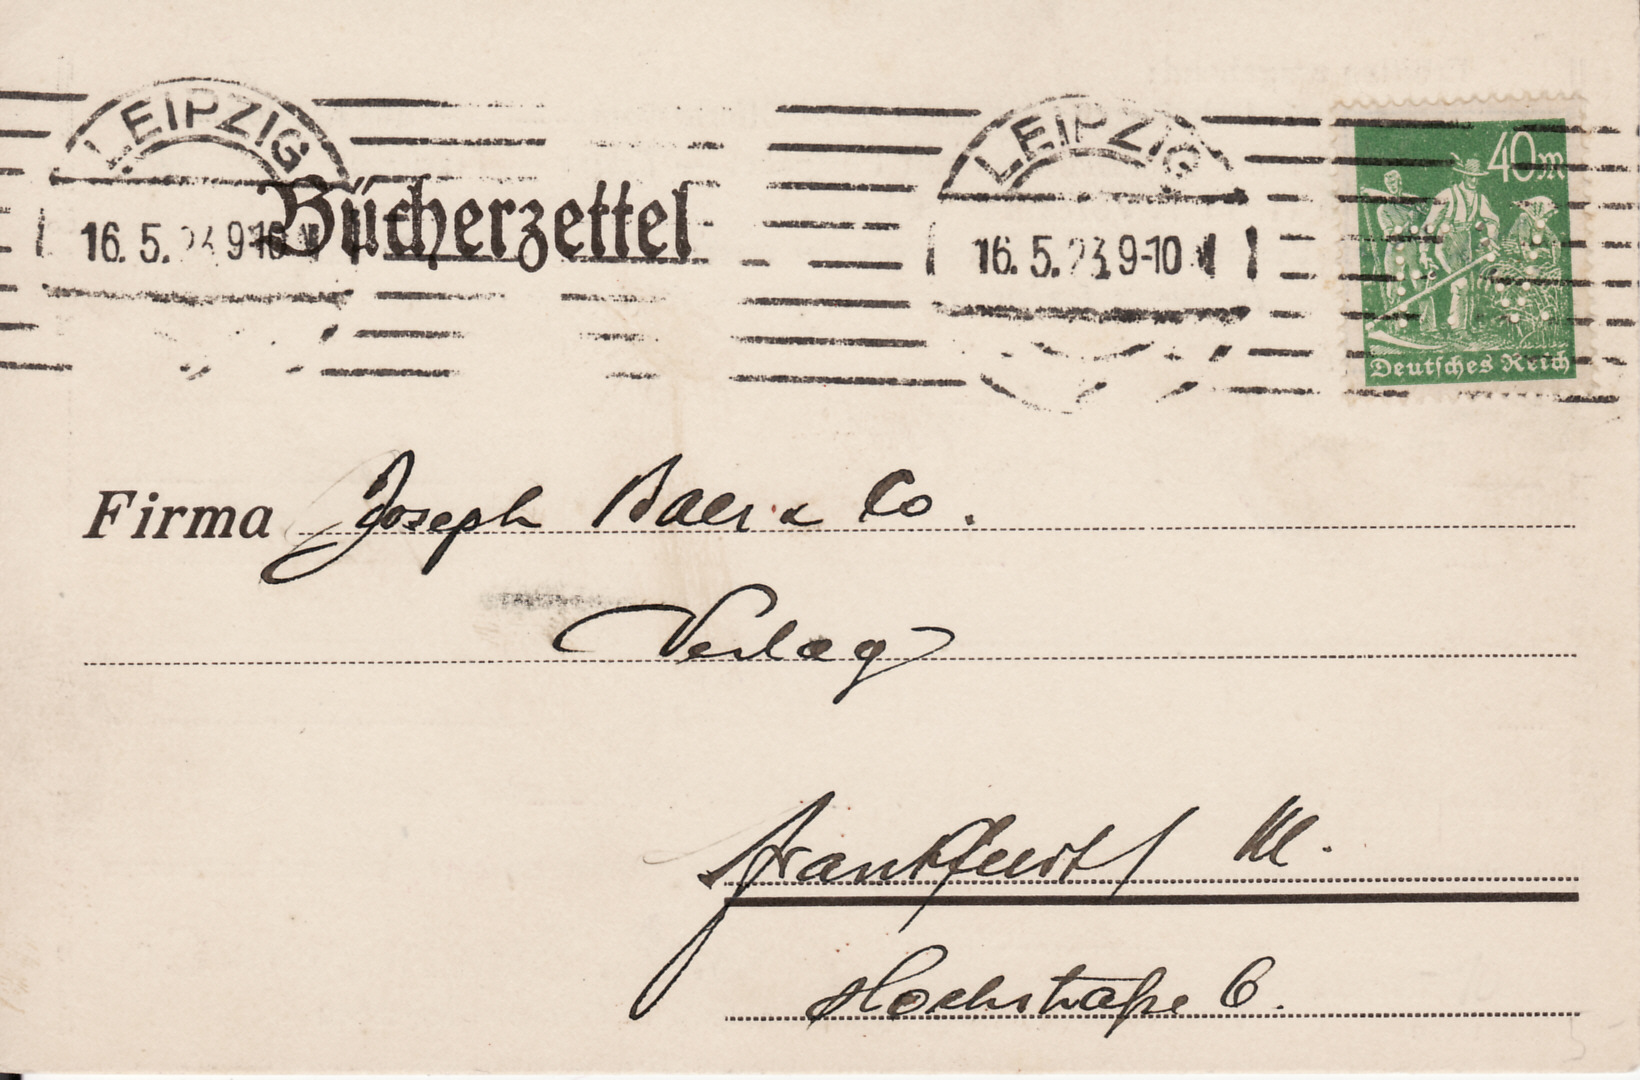 LEIPZIG
16. 5. 23 9-10 V
Bücherzettel
LEIPZIG
16. 5. 23 9-10 V
40 m
Deutsches Reich
Firma Joseph Baer & Co.
Verlag
Frankfurt/M.
Hochstraße 6.